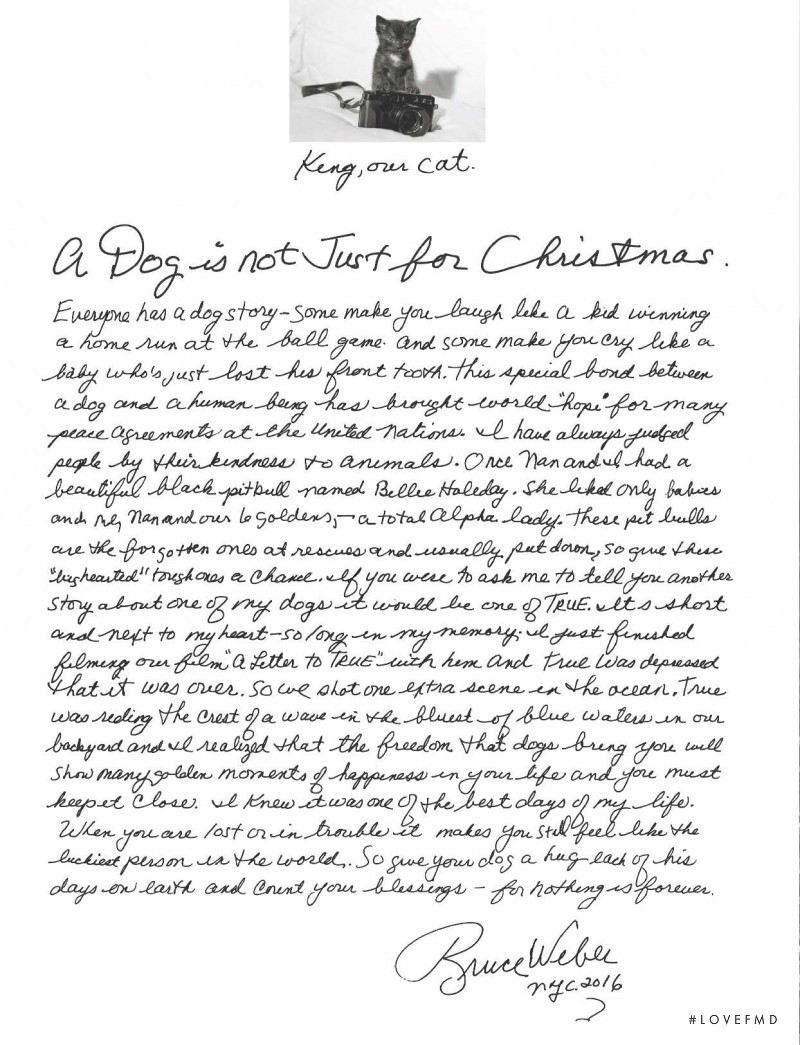 Keng, our cat.
A Dog is not Just for Christmas.
Everyone has a dog story – some make you laugh like a kid winning
a home run at the ball game. and some make you cry like a
baby who's just lost his front tooth. This special bond between
a dog and a human being has brought world "hope" for many
peace agreements at the United Nations. I have always judged
people by their kindness to animals. Once Nan and I had a
beautiful black pitbull named Billie Holiday. She liked only babies
and me, Nan and our 6 goldens, – a total Alpha lady. These pit bulls
are the forgotten ones at rescues and usually put down, so give these
"big hearted" tough ones a chance. If you were to ask me to tell you another
story about one of my dogs it would be one of TRUE. It's short
and next to my heart – so long in my memory; I just finished
filming our film "A Letter to TRUE" with him and True was depressed
that it was over. So we shot one extra scene in the ocean. True
was riding the crest of a wave in the bluest of blue waters in our
backyard and I realized that the freedom that dogs bring you will
show many golden moments of happiness in your life and you must
keep it close. I knew it was one of the best days of my life.
When you are lost or in trouble it makes you still feel like the
luckiest person in the world. So give your dog a hug each of his
days on earth and count your blessings – for nothing is forever.
Bruce Weber
NYC. 2016
#LOVEFMD